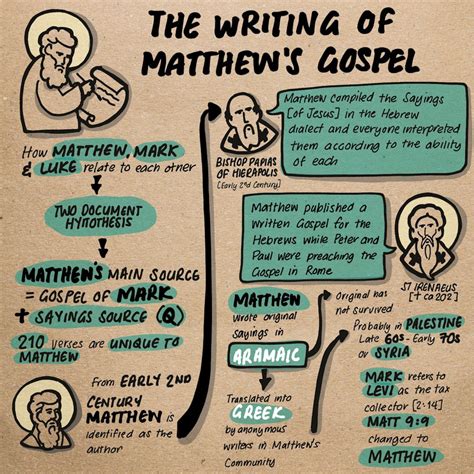 THE WRITING OF
MATTHEW'S GOSPEL
How MATTHEW, MARK
& LUKE relate to each other
TWO DOCUMENT
HYPOTHESIS
MATTHEW'S MAIN SOURCE
= GOSPEL OF MARK
+ SAYINGS SOURCE (Q)
210 verses are UNIQUE TO
MATTHEW
from EARLY 2ND
CENTURY MATTHEW is
identified as the
author
BISHOP PAPIAS
OF HIERAPOLIS
[Early 2nd Century]
Matthew compiled the Sayings
[of Jesus] in the Hebrew
dialect and everyone interpreted
them according to the ability
of each
Matthew published a
written Gospel for the
Hebrews while Peter and
Paul were preaching the
Gospel in Rome
ST IRENAEUS
[† ca 202]
MATTHEW
wrote original
sayings in
ARAMAIC
Translated into
GREEK
by anonymous
writers in Matthew's
Community
Original has
not survived
Probably in PALESTINE
Late 60s - Early 70s
or SYRIA
MARK refers to
LEVI as the tax
collector [2:14]
MATT 9:9
changed to
MATTHEW